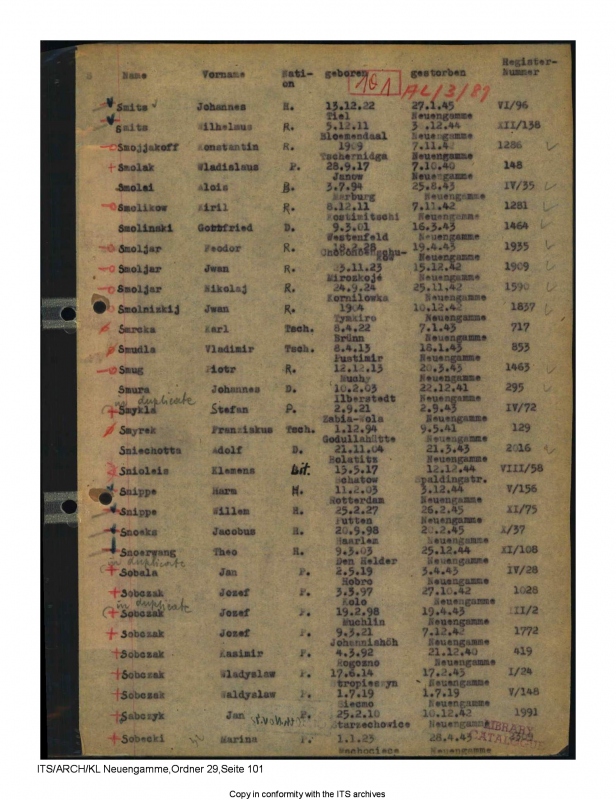 Register-
Name Vorname Nati- geboren gestorben Nummer
on
101 AL/3/89
Smits Johannes H. 13.12.22 27.1.45 VI/96
Tiel Neuengamme
Smits Wilhelmus 5.12.11 12.44 XII/138
Bloemendaal Neuengamme
Smojjakoff Konstantin R. 1909 7.11.42 1286
Tschernidga Neuengamme
Smolak Wladislaus P. 28.9.17 7.10.40 148
Janow Neuengamme
Smolei Alois 3.7.94 25.8.43 IV/35
Marburg Neuengamme
Smolikow Kiril R. 8.12.11 7.11.42 1281
Kostimitschi Neuengamme
Smolinski Gottfried D. 9.3.01 16.3.43 1464
Westenfeld Neuengamme
Smoljar Feodor R. 18.2.28 19.4.43 1935
Neuengamme
Smoljar Jwan R. 3.11.23 15.12.42 1909
Mirozkoje Neuengamme
Smoljar Nikolaj R. 24.9.24 25.11.42 1590
Kornilowka Neuengamme
Smolnizkij Jwan R. 1904 10.12.42 1837
Tymkiro Neuengamme
Smrcka Karl Tsch. 8.4.22 7.1.43 717
Brünn Neuengamme
Smudla Vladimir Tsch. 8.4.13 18.1.43 853
Pustimir Neuengamme
Smug Piotr R. 12.12.13 20.3.43 1463
Muchy Neuengamme
Smura Johannes D. 10.2.03 22.12.41 295
Ilberstedt Neuengamme
in duplicate
Smykla Stefan P. 2.9.21 2.9.43 IV/72
Zabia-Wola Neuengamme
Smyrek Franziskus Tsch. 1.12.94 9.5.41 129
Godullahütte Neuengamme
Sniechotta Adolf D. 21.11.04 21.3.43 2016
Bolatitz Neuengamme
Snioleis Klemens Lit. 15.5.17 12.12.44 VIII/58
Schatow Spaldingstr.
Snippe Harm H. 11.2.03 3.12.44 V/156
Rotterdam Neuengamme
Snippe Willem H. 25.2.27 26.2.45 XI/75
Putten Neuengamme
Snoeks Jacobus H. 20.9.98 20.2.45 X/37
Haarlem Neuengamme
Snoerwang Theo H. 9.3.03 25.12.44 XI/108
Den Helder Neuengamme
in duplicate
Sobala Jan P. 2.5.19 3.4.43 IV/28
Hobro Neuengamme
Sobczak Jozef P. 3.3.97 27.10.42 1028
Kolo Neuengamme
in duplicate
Sobczak Jozef P. 19.2.98 19.4.43 III/2
Muchlin Neuengamme
Sobczak Jozef P. 9.3.21 7.12.42 1772
Johannishöh Neuengamme
Sobczak Kasimir P. 4.3.92 21.12.40 419
Rogozno Neuengamme
Sobczak Wladyslaw P. 17.6.14 17.2.43 I/24
Stropieszyn Neuengamme
Sobczak Waldyslaw P. 1.7.19 1.7.19 V/148
Siecmo Neuengamme
Sabczyk Jan P. 25.2.10 10.12.42 1991
Starzechowice Neuengamme
Sobecki Marina P. 1.1.23 28.4.43
Wachoniace Neuengamme
LIBRARY
ITS/ARCH/KL Neuengamme,Ordner 29,Seite 101
Copy in conformity with the ITS archives